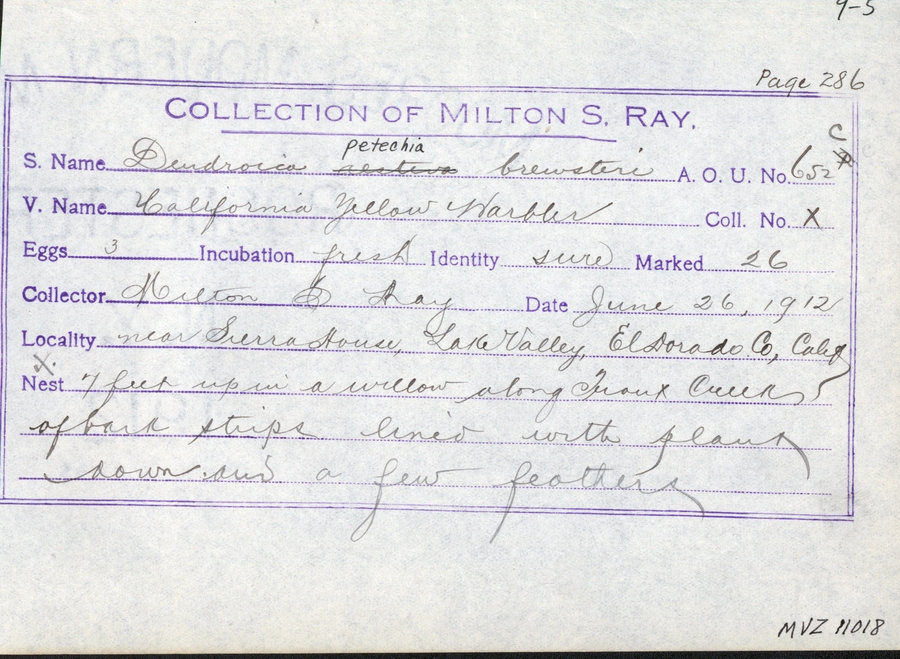 9-5
Page 286
COLLECTION OF MILTON S. RAY.
petechia
S. Name Dendroica aestiva brewsteri A. O. U. No. 652 c
V. Name California Yellow Warbler Coll. No. X
Eggs 3 Incubation fresh Identity sure Marked 26
Collector Milton S Ray Date June 26, 1912
Locality near Sierra House, Lake Valley, El Dorado Co, Calif
X.
Nest 7 feet up in a willow along Trout Creek
of bark strips lined with plant
down and a few feathers
MVZ 11018